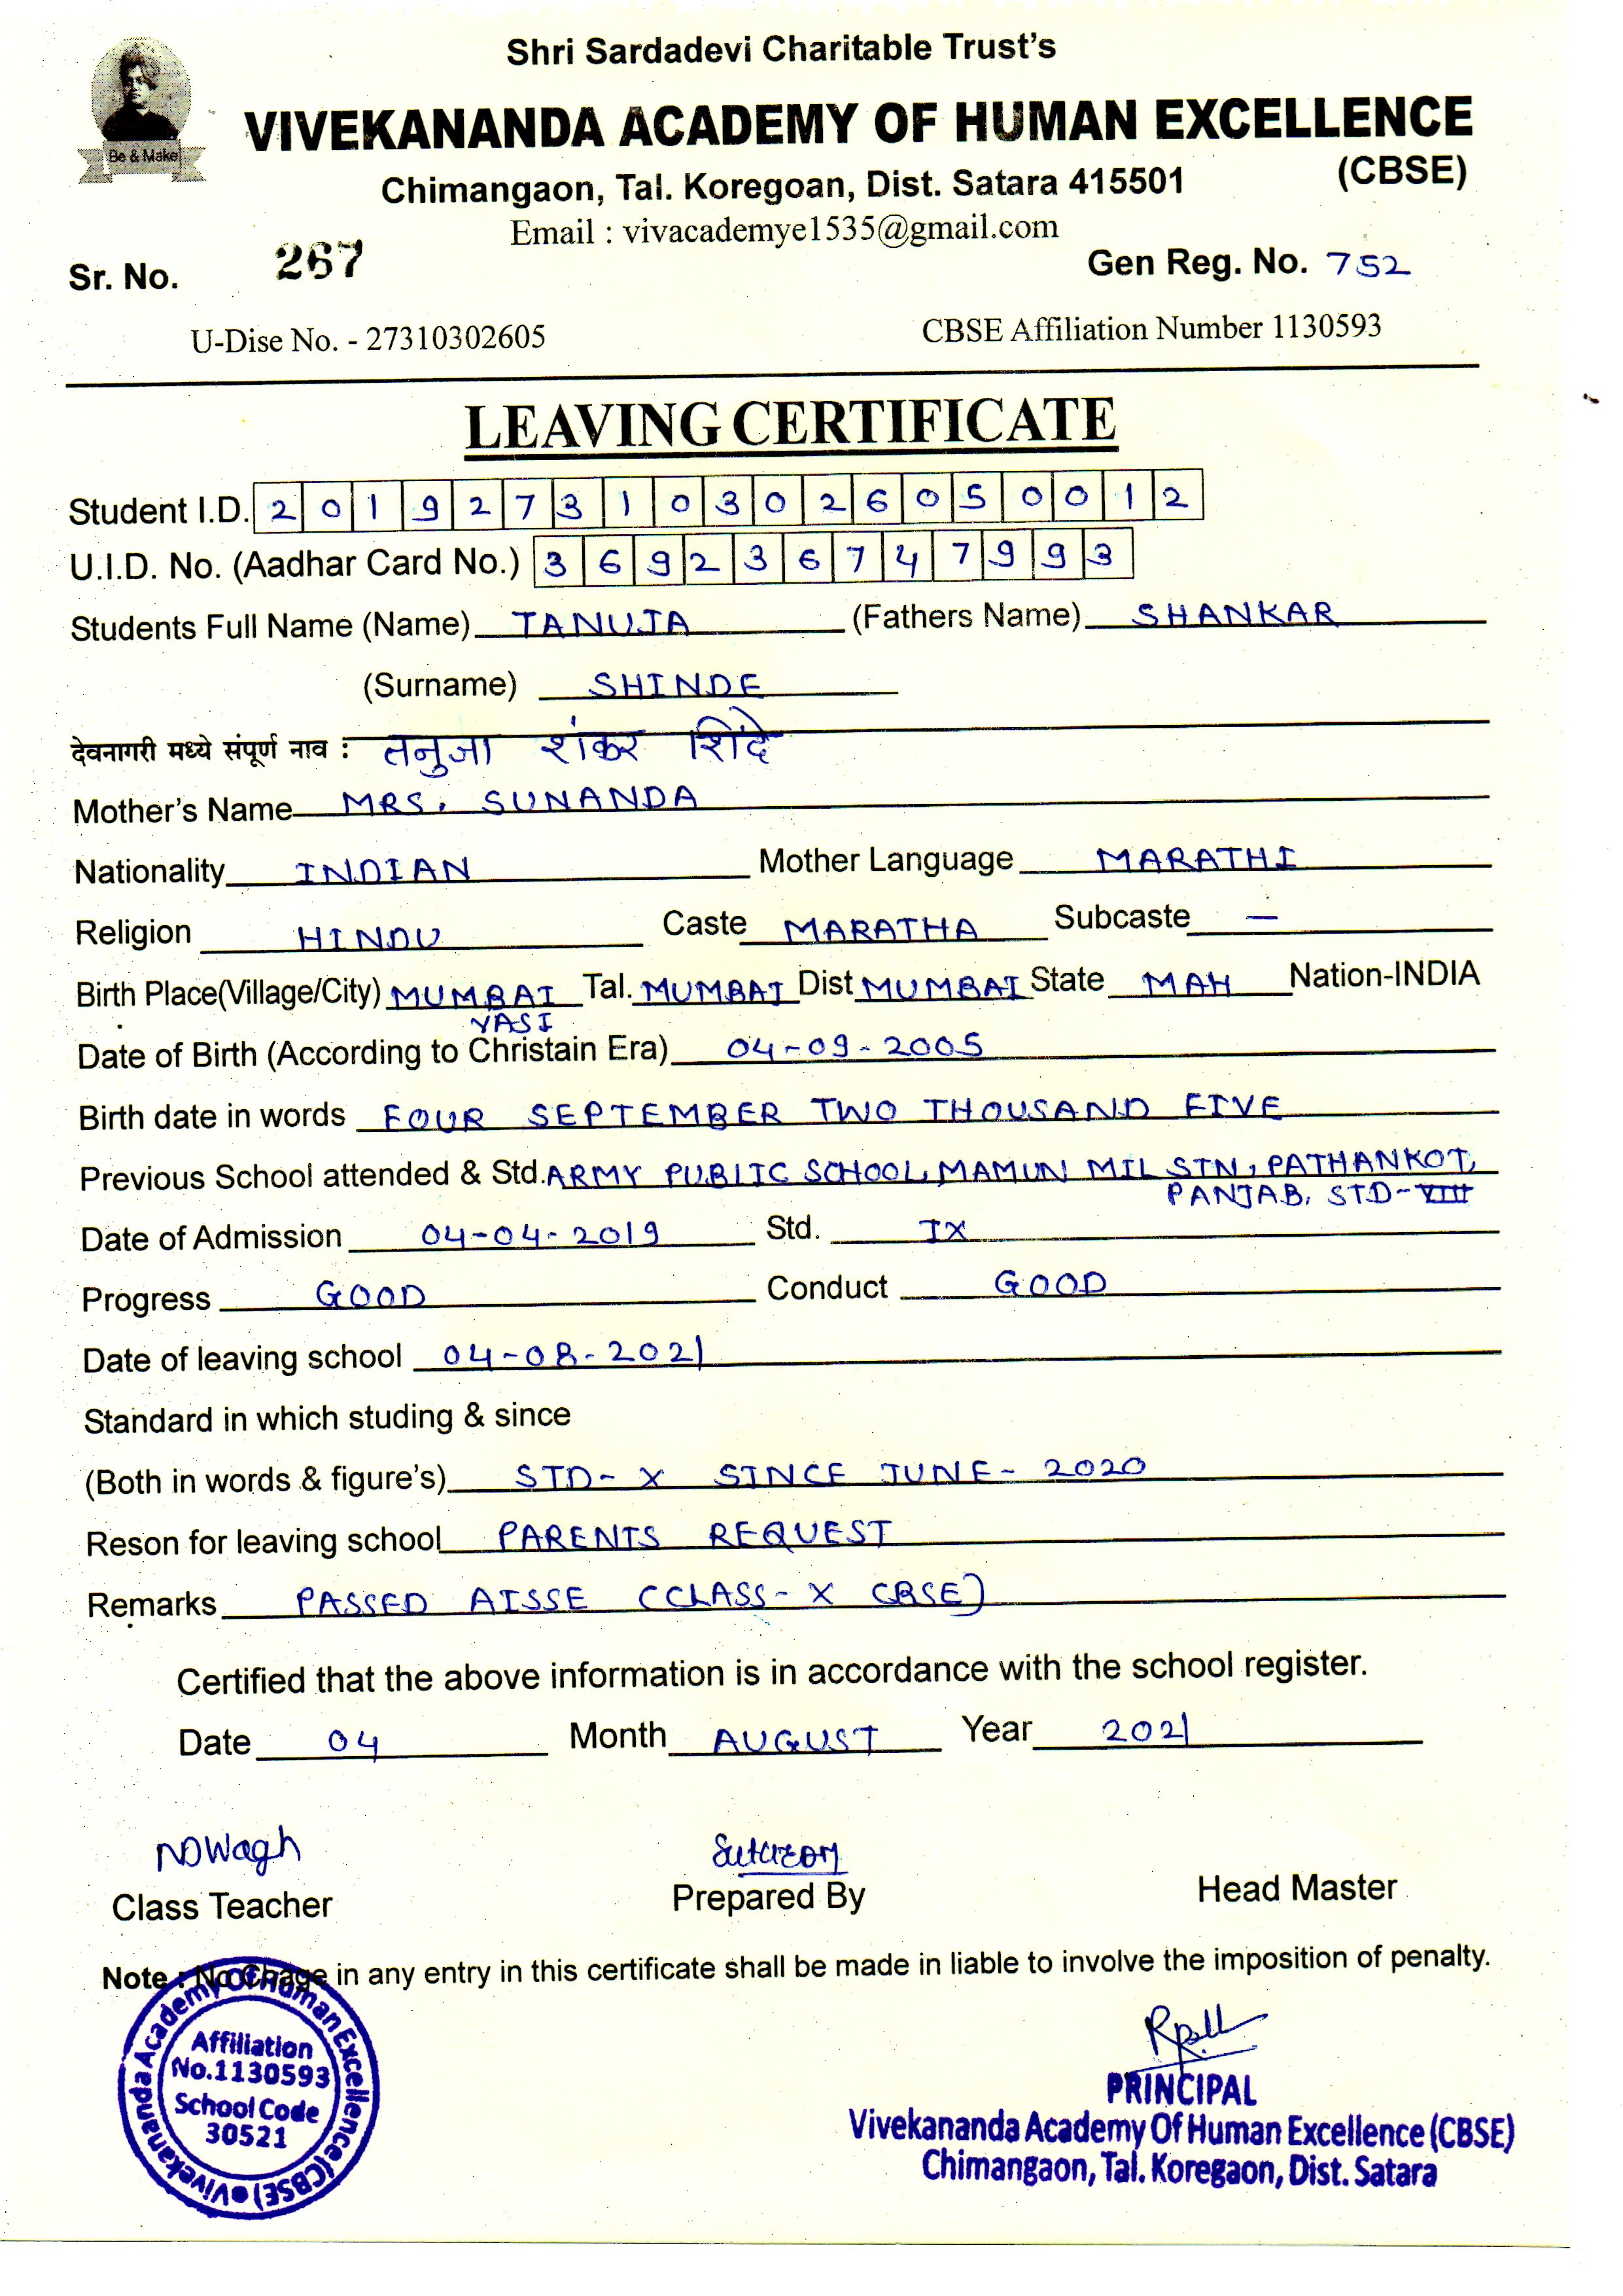 Shri Sardadevi Charitable Trust's
Be & Make
VIVEKANANDA ACADEMY OF HUMAN EXCELLENCE
(CBSE)
Chimangaon, Tal. Koregoan, Dist. Satara 415501
Email : vivacademye1535@gmail.com
Sr. No. 267 Gen Reg. No. 752
U-Dise No. - 27310302605 CBSE Affiliation Number 1130593
LEAVING CERTIFICATE
Student I.D. 2019273103026050012
U.I.D. No. (Aadhar Card No.) 369236747993
Students Full Name (Name) TANUJA (Fathers Name) SHANKAR
(Surname) SHINDE
देवनागरी मध्ये संपूर्ण नाव : तनुजा शंकर शिंदे
Mother's Name MRS. SUNANDA
Nationality INDIAN Mother Language MARATHI
Religion HINDU Caste MARATHA Subcaste —
Birth Place(Village/City) MUMBAI Tal. MUMBAI Dist MUMBAI State MAH Nation-INDIA
VASI
Date of Birth (According to Christain Era) 04-09-2005
Birth date in words FOUR SEPTEMBER TWO THOUSAND FIVE
Previous School attended & Std. ARMY PUBLIC SCHOOL, MAMUN MIL STN, PATHANKOT,
PANJAB, STD-VIII
Date of Admission 04-04-2019 Std. IX
Progress GOOD Conduct GOOD
Date of leaving school 04-08-2021
Standard in which studing & since
(Both in words & figure's) STD- X SINCE JUNE- 2020
Reson for leaving school PARENTS REQUEST
Remarks PASSED AISSE (CLASS- X CBSE)
Certified that the above information is in accordance with the school register.
Date 04 Month AUGUST Year 2021
NDWagh
Class Teacher Prepared By Head Master
Note : No Chage in any entry in this certificate shall be made in liable to involve the imposition of penalty.
Vivekananda Academy Of Human Excellence (CBSE)
Affiliation
No.1130593
School Code
30521
PRINCIPAL
Vivekananda Academy Of Human Excellence (CBSE)
Chimangaon, Tal. Koregaon, Dist. Satara